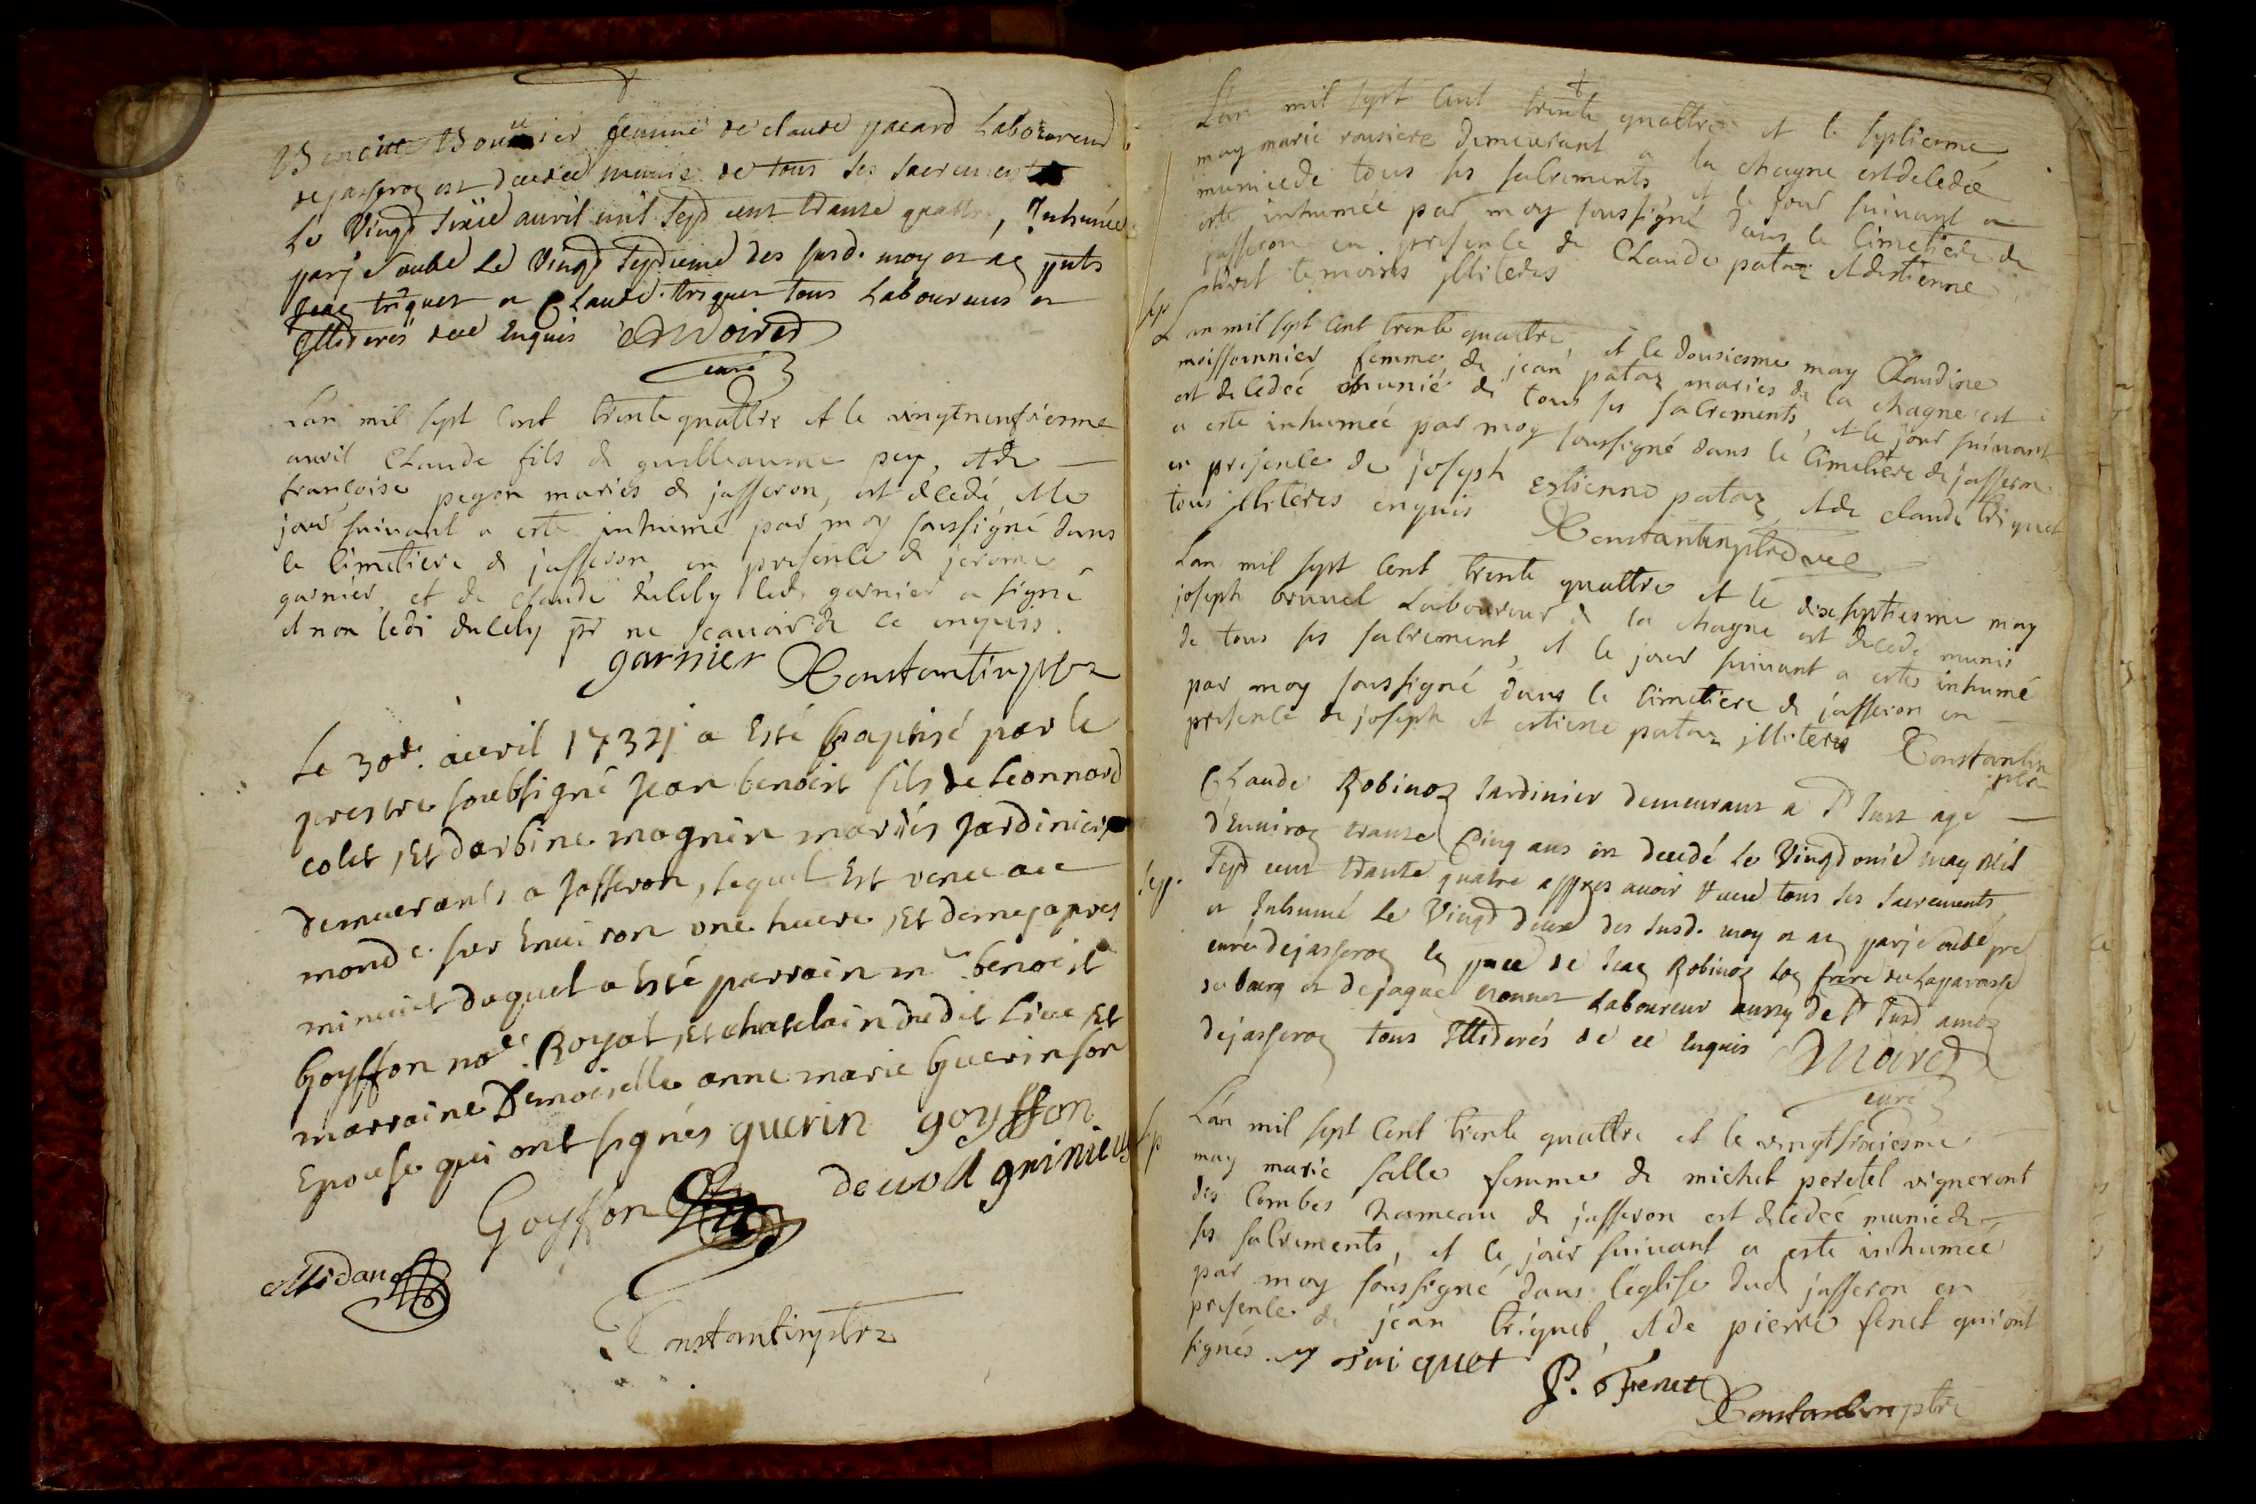 Benoitte femme de claude pacard Laboureur
de jasseroz est decedée munie de tous ses sacrements
Le Vingt sixie avril mil sept cent trante quattre, Inhumée
par je soubs le Vingt septieme des susd. moy et an pnts
jean triquet et Claude triquet tous Laboureurs et
Illiterés de ce enquis
curé
Lan mil sept cent trente quattre et le vingtneufviesme
avril Claude fils de guilleaume pey, et de
françoise pegon mariés de jasseron, est decedé, et le
jour suivant a este inhumé par moy soussigné dans
le cimetiere de jasseron en presence de jerome
garnier et de claude dulily led. garnier a signé
et non ledi dulily pr ne scavoir de ce enquis.
garnier Constantin ptre
Le 30e. avril 1734 a Esté baptisé par le
prestre soubsigné jean benoist fils de Leonnard
colet, Et darbine magnin mariés jardiniers
demeurants a jasseron, lequel Est venu au
monde sur Environ une heure, Et demy apres
minuict duquel a Esté parrain mr benoist
Goyffon nore. Royal, Et chatelain dudit Lieu, Et
marraine Demoiselle anne marie Guerin son
Epouse qui ont signés guerin goyffon
Goyffon
Midan
Constantin ptre
Lan mil sept cent trente quattre et le septiesme
may marie rousiere demeurant a la chagne est decedée
munie de tous ses sacrements, et le jour suivant a
este inhumée par moy soussigné dans le cimetiere de
jasseron en presence de Claude pataz et destienne
temoins illiteres
Lan mil sept cent trente quattre, et le dousiesme may Claudine
moissonnier femme de jean pataz mariés de la chagne est
est decedée munie de tous ses sacrements, et le jour suivant
a este inhumée par moy soussigné dans le cimetiere de jasseron
en presence de joseph estienne pataz, et de claude triquet
tous illiteres enquis Constantin ptre
Lan mil sept cent trente quattre et le dixseptiesme may
joseph brunel Laboureur de la chagne est decedé munis
de tous ses sacrement, et le jour suivant a este inhumé
par moy soussigné dans le cimetiere de jasseron en
presence de joseph et estiene pataz illiteres Constantin
ptre
Claude Robinoz Jardinier demeurant a St Just agé
d'Environ trante Cinq ans est decedé le Vingt may Mil
Sept cent trante quatre appres avoir receu tous ses sacrements,
et Inhumé le Vingt deux des susd. moy et an par je soubs pre
curé dejasseroz en pnce de Jean Robinoz son frere de la paroisse
du bourg et de jaque Laboureur aussy de St Just
dejasseroz tous Illiderés de ce enquis
curé
Lan mil sept cent trente quattre et le vingtsixiesme
may marie salle femme de michel peretel vigneront
des Combes hameau de jasseron est decedée munie de
ses sacrements, et le jour suivant a este inhumée
par moy soussigné dans l'eglise dud jasseron en
presence de jean triquet, et de pierre fenet qui ont
signés. triquet P. Fenet
Constantin ptre